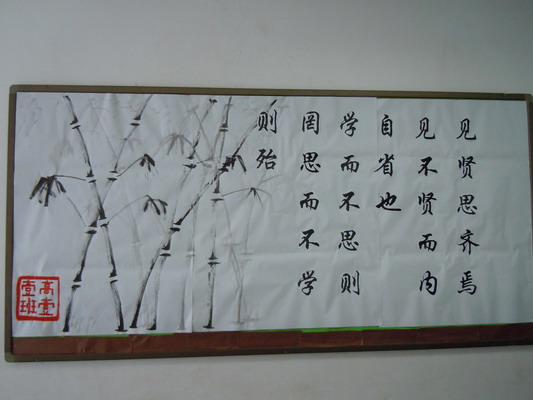 见贤思齐焉
见不贤而内
自省也
学而不思则
罔思而不学
则殆
高壹
壹班